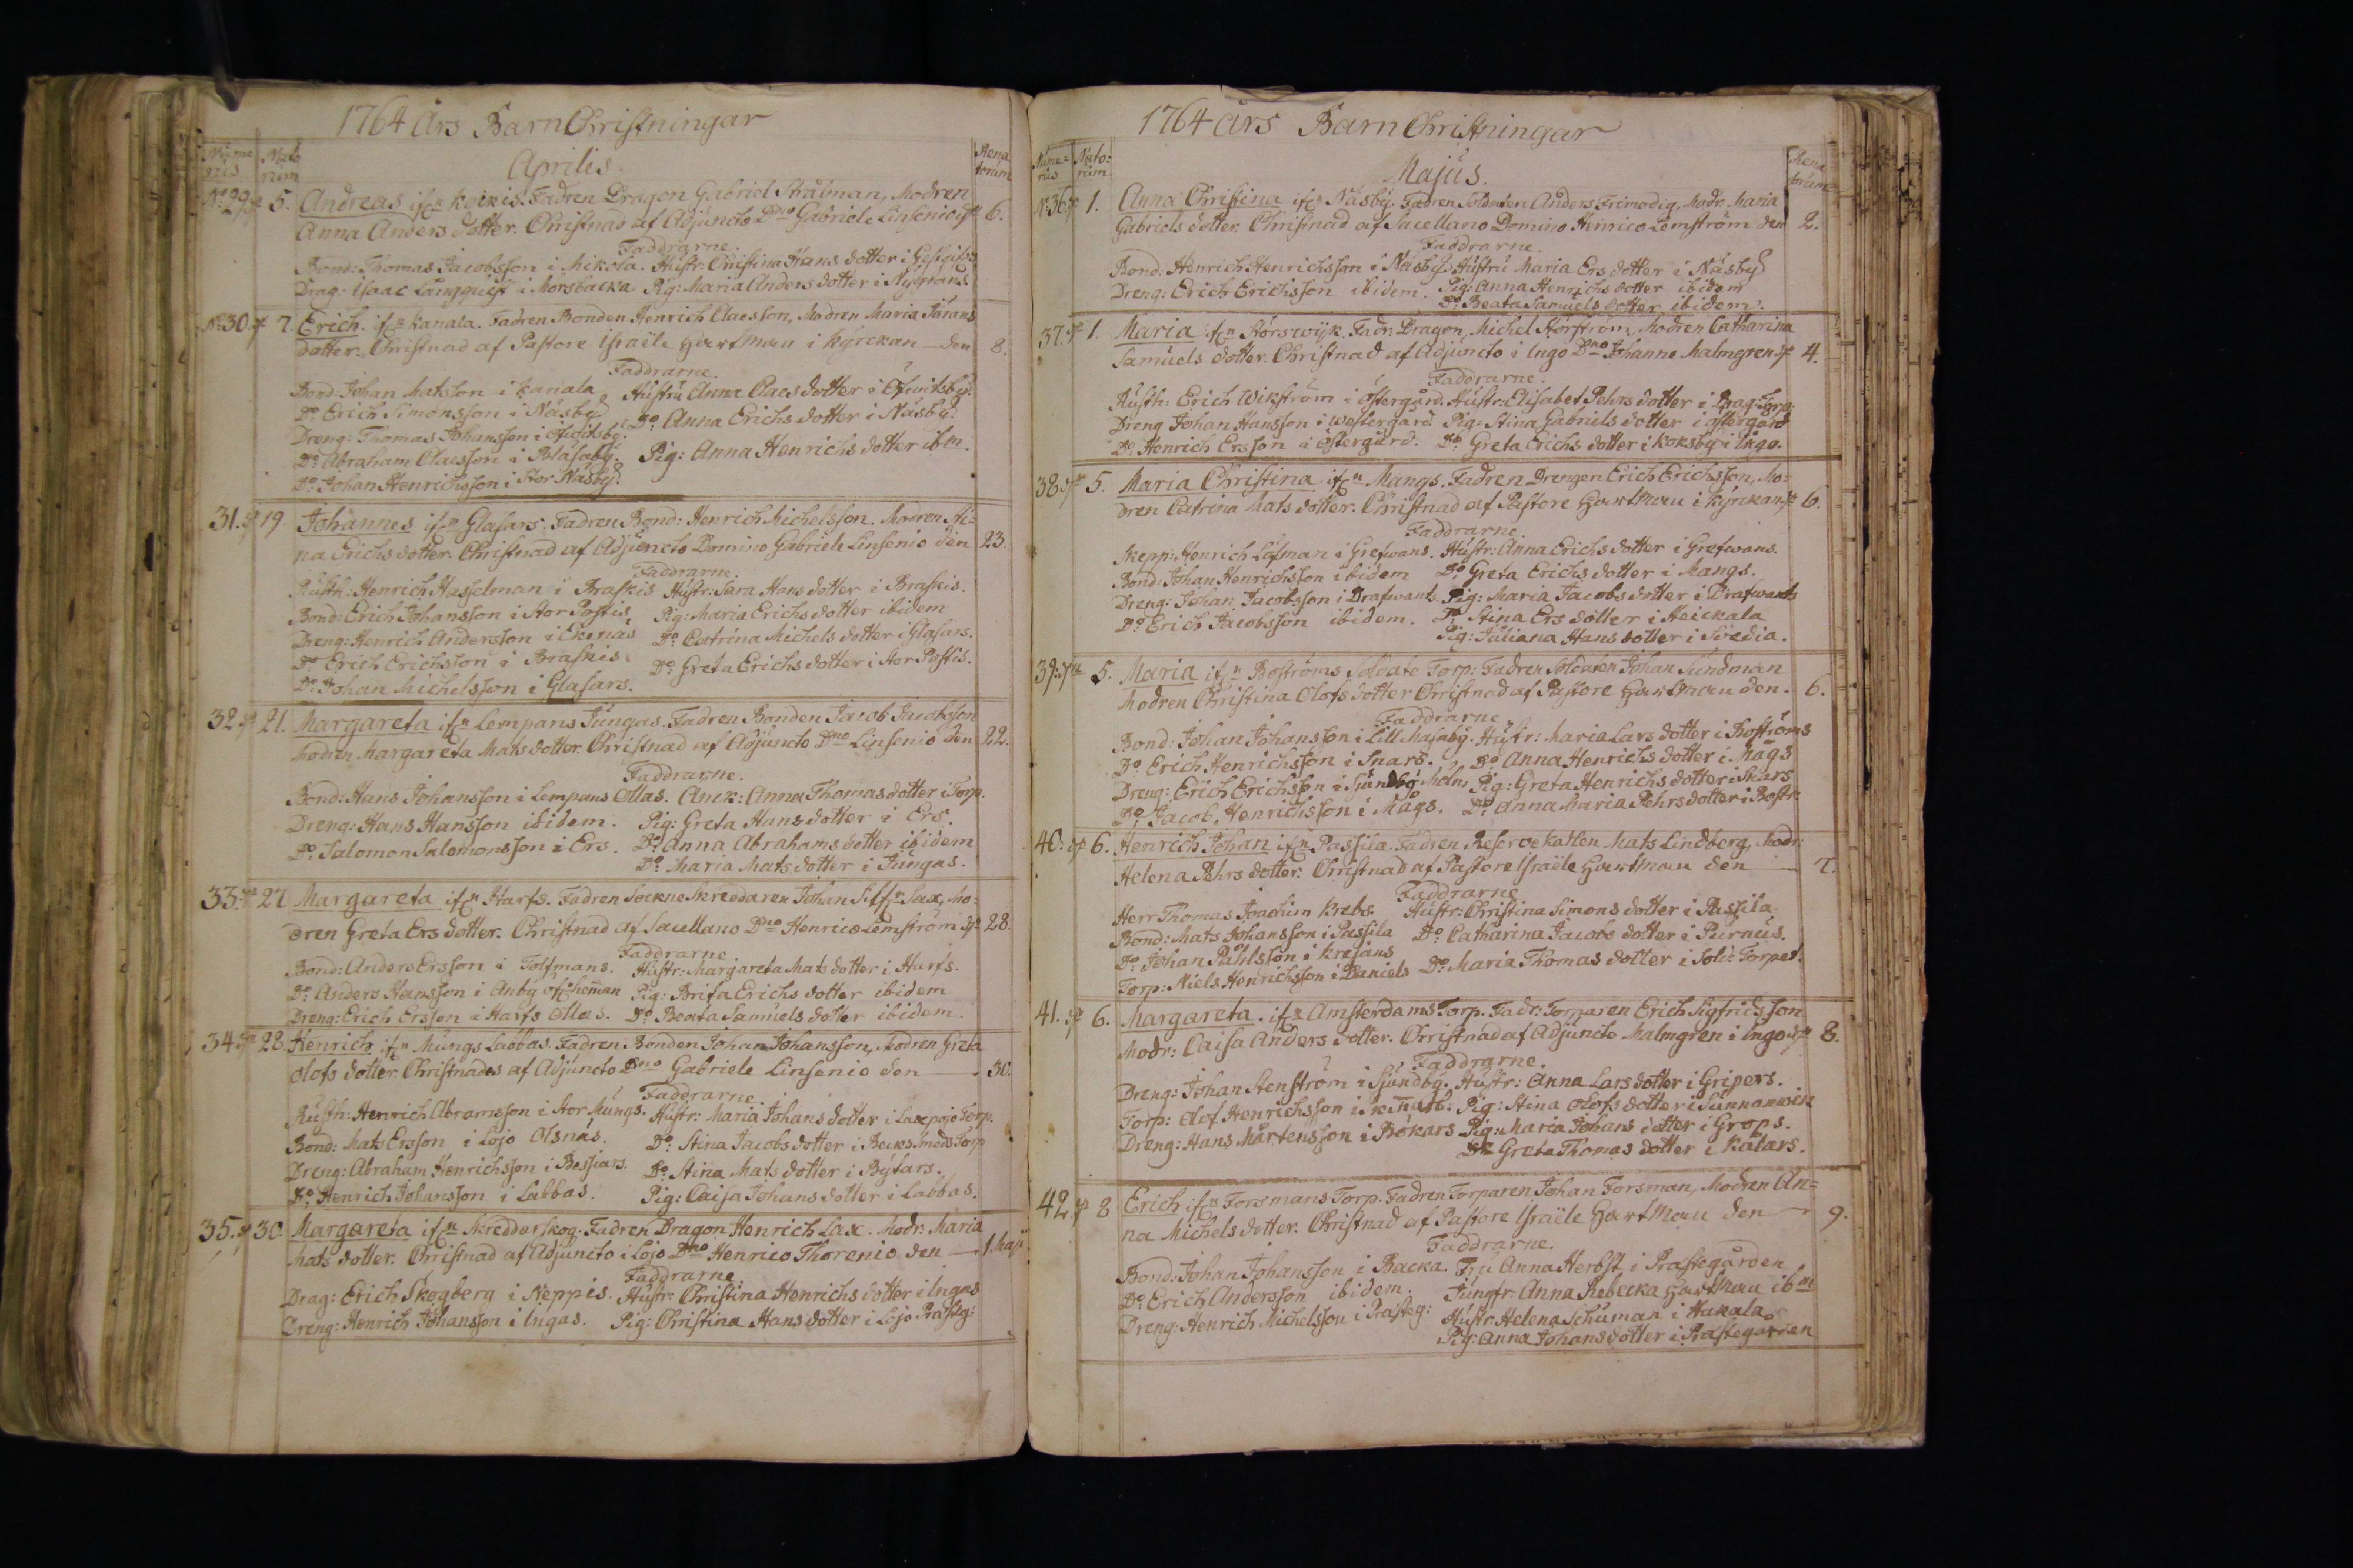 1764 Års Barn Christningar
Nume rus Nato rum Aprilis Rena torum
No: 29 5. Andreas ifrn Koikis. Fadren Dragon Gabriel Stålman, Modren
Anna Anders dotter. Christnad af Adjuncto Dno Gabriele Linsenio 6.
Faddrarne.
Bond: Thomas Jacobsson i Mikola. Hustr: Christina Hans dotter i
Drag: Isaac Långquist i Morsbacka Pig: Maria Anders dotter i Nygrans
No: 30. 7. Erich. ifrn Kanala. Fadren Bonden Henrich Claesson, Modren Maria Jörans
dotter. Christnad af Pastore Israële Hartman i Kyrckan den 8.
Faddrarne.
Bond: Johan Matsson i Kanala Hustru Anna Claes dotter i
Do Erich Simonsson i Näsby Do Anna Erichs dotter i Näsby.
Dreng: Thomas Johansson i
Do Abraham Claesson i Blåsaby. Pig: Anna Henrichs dotter ibm.
Do Johan Henrichsson i Stor Näsby.
31. 19. Johannes ifrn Glasars. Fadren Bond: Henrich Michelsson. Modren An-
na Erichs dotter. Christnad af Adjuncto Domino Gabriele Linsenio den 23.
Faddrarne.
Rusth: Henrich Hasselman i Braskis Hustr: Sara Hans dotter i Braskis.
Bond: Erich Johansson i Stor Postis, Pig: Maria Erichs dotter ibidem
Dreng: Henrich Andersson i Ekenäs Do Catrina Michels dotter i Glasars.
Do Erich Erichsson i Braskis Do Greta Erichs dotter i Stor Postis.
Do Johan Michelsson i Glasars.
32. 21. Margareta ifrn Lempans Jungas. Fadren Bonden Jacob Jacobsson
Modren Margareta Mats dotter. Christnad af Adjuncto Dno Linsenio den 22.
Faddrarne.
Bond: Hans Johansson i Lempans Ollas. Anck: Anna Thomas dotter i Torp.
Dreng: Hans Hansson ibidem. Pig: Greta Hans dotter i Ers.
Do Salomon Salomonsson i Ers. Do Anna Abrahams dotter ibidem
Do Maria Mats dotter i Jungas.
33. 27 Margareta ifrn Harfs. Fadren Sockne Skreddaren Johan Lax, Mo-
dren Greta Ers dotter. Christnad af Sacellano Dno Henrico Lemström 28.
Faddrarne.
Bond: Anders Ersson i Tolfmans. Hustr: Margareta Mats dotter i Harfs.
Do Anders Hansson i Anby Pig: Brita Erichs dotter ibidem
Dreng: Erich Ersson i Harfs Ollas. Do Beata Samuels dotter ibidem.
34 28. Henrich ifrn Mungs Labbas. Fadren Bonden Johan Johansson, Modren Greta
Olofs dotter. Christnades af Adjuncto Dno Gabriele Linsenio den 30.
Faddrarne.
Rusth: Henrich Abramsson i Stor Mungs. Hustr: Maria Johans dotter i Laxpojo Torp.
Bond: Mats Ersson i Lojo Olsnäs. Do Stina Jacobs dotter i Torp
Dreng: Abraham Henrichsson i Bessiars. Do Stina Mats dotter i Bytars.
Do Henrich Johansson i Labbas. Pig: Caisa Johans dotter i Labbas.
35. 30. Margareta ifrn Skreddarskog. Fadren Dragon Henrich Lax. Modr: Maria
Mats dotter. Christnad af Adjuncto i Lojo Dno Henrico Thorenio den 1. Maji
Faddrarne.
Drag: Erich Skogberg i Neppis. Hustr: Christina Henrichs dotter i Ingas
Dreng: Henrich Johansson i Ingas. Pig: Christina Hans dotter i Lojo Prästeg:
1764 års Barn Christningar
Nume- rus Nato- rum Majus. Rena torum
No 36. 1. Anna Christina ifrn Näsby. Fadren Soldaten Anders Frimodig, Modr. Maria
Gabriels dotter. Christnad af Sacellano Domino Henrico Lemström den 2.
Faddrarne.
Bond: Henrich Henrichsson i Näsby. Hustru Maria Ers dotter i Näsby
Dreng: Erich Erichsson ibidem. Pig: Anna Henrichs dotter ibidem
Do Beata Samuels dotter ibidem.
37. 1. Maria ifrn Storswijk. Fadr: Dragon, Michel Storström, Modren Catharina
Samuels dotter. Christnad af Adjuncto i Ingo Dno Johanne Malmgren 4.
Faddrarne.
Rusth: Erich Wikström i Östergård. Hustr: Elisabet Pehrs dotter i Drag: Torp.
Dreng Johan Hansson i Westergård Pig: Stina Gabriels dotter i Östergård
Do Henrich Ersson i Östergård. Do Greta Erichs dotter i Koksby i Ingo.
38. 5. Maria Christina ifrn Mangs. Fadren Drengen Erich Erichsson, Mo-
dren Catrina Mats dotter. Christnad af Pastore Hartman i Kyrckan 6.
Faddrarne.
Skepp: Henrich Löfman i Grefwans. Hustr: Anna Erichs dotter i Grefwans.
Bond: Johan Henrichsson ibidem Do Greta Erichs dotter i Mangs.
Dreng: Johan Jacobsson i Drafwants Pig: Maria Jacobs dotter i Drafwants
Do Erich Jacobsson ibidem. Do Stina Ers dotter i Heickala
Pig: Juliana Hans dotter i Svedia.
39. 5. Maria ifrn Boströms Soldate Torp: Fadren Soldaten Johan Sundman
Modren Christina Olofs dotter Christnad af Pastore Hartman den. 6.
Faddrarne
Bond: Johan Johansson i Lill Majaby. Hustr: Maria Lars dotter i Boströms
Do Erich Henrichsson i Snars. Do Anna Henrichs dotter i Mågs
Dreng: Erich Erichsson i Sjundby Pig: Greta Henrichs dotter i
Do Jacob Henrichsson i Mågs. Do Anna Maria Pehrs dotter i Bostr:
40. 6. Henrich Johan ifrn Passila. Fadren Reserve Karlen Mats Lindberg, Modr:
Helena Pehrs dotter. Christnad af Pastore Israële Hartman den 7.
Faddrarne
Herr Thomas Joachim Krebs Hustr: Christina Simons dotter i Passila
Bond: Mats Johansson i Passila Do Catharina Jacobs dotter i Purnus.
Do Johan Påhlsson i Krejans Do Maria Thomas dotter i Torpet.
Torp: Niels Henrichsson i Daniels
41. 6. Margareta. ifrn Amsterdams Torp. Fadr: Torparen Erich Sigfridsson
Modr: Caisa Anders dotter. Christnad af Adjuncto Malmgren i Ingo 8.
Faddrarne.
Dreng: Johan Stenström i Sjundby. Hustr: Anna Lars dotter i Gripers.
Torp: Olof Henrichsson i Pig: Stina Olofs dotter i Sunnanwik
Dreng: Hans Mårtensson i Bökars Pig: Maria Johans dotter i Grops.
Do Greta Thomas dotter i Kalars.
42 8 Erich ifrn Forsmans Torp. Fadren Torparen Johan Forsman, Modren An-
na Michels dotter. Christnad af Pastore Israële Hartman den 9.
Faddrarne.
Bond: Johan Johansson i Backa. Fru Anna Herbst i Prästegården
Do Erich Andersson ibidem. Jungfr: Anna Rebecka Hartman ibm
Dreng: Henrich Michelsson i Prästeg: Hustr: Helena Schuman i Hakala
Pig: Anna Johans dotter i Prästegården